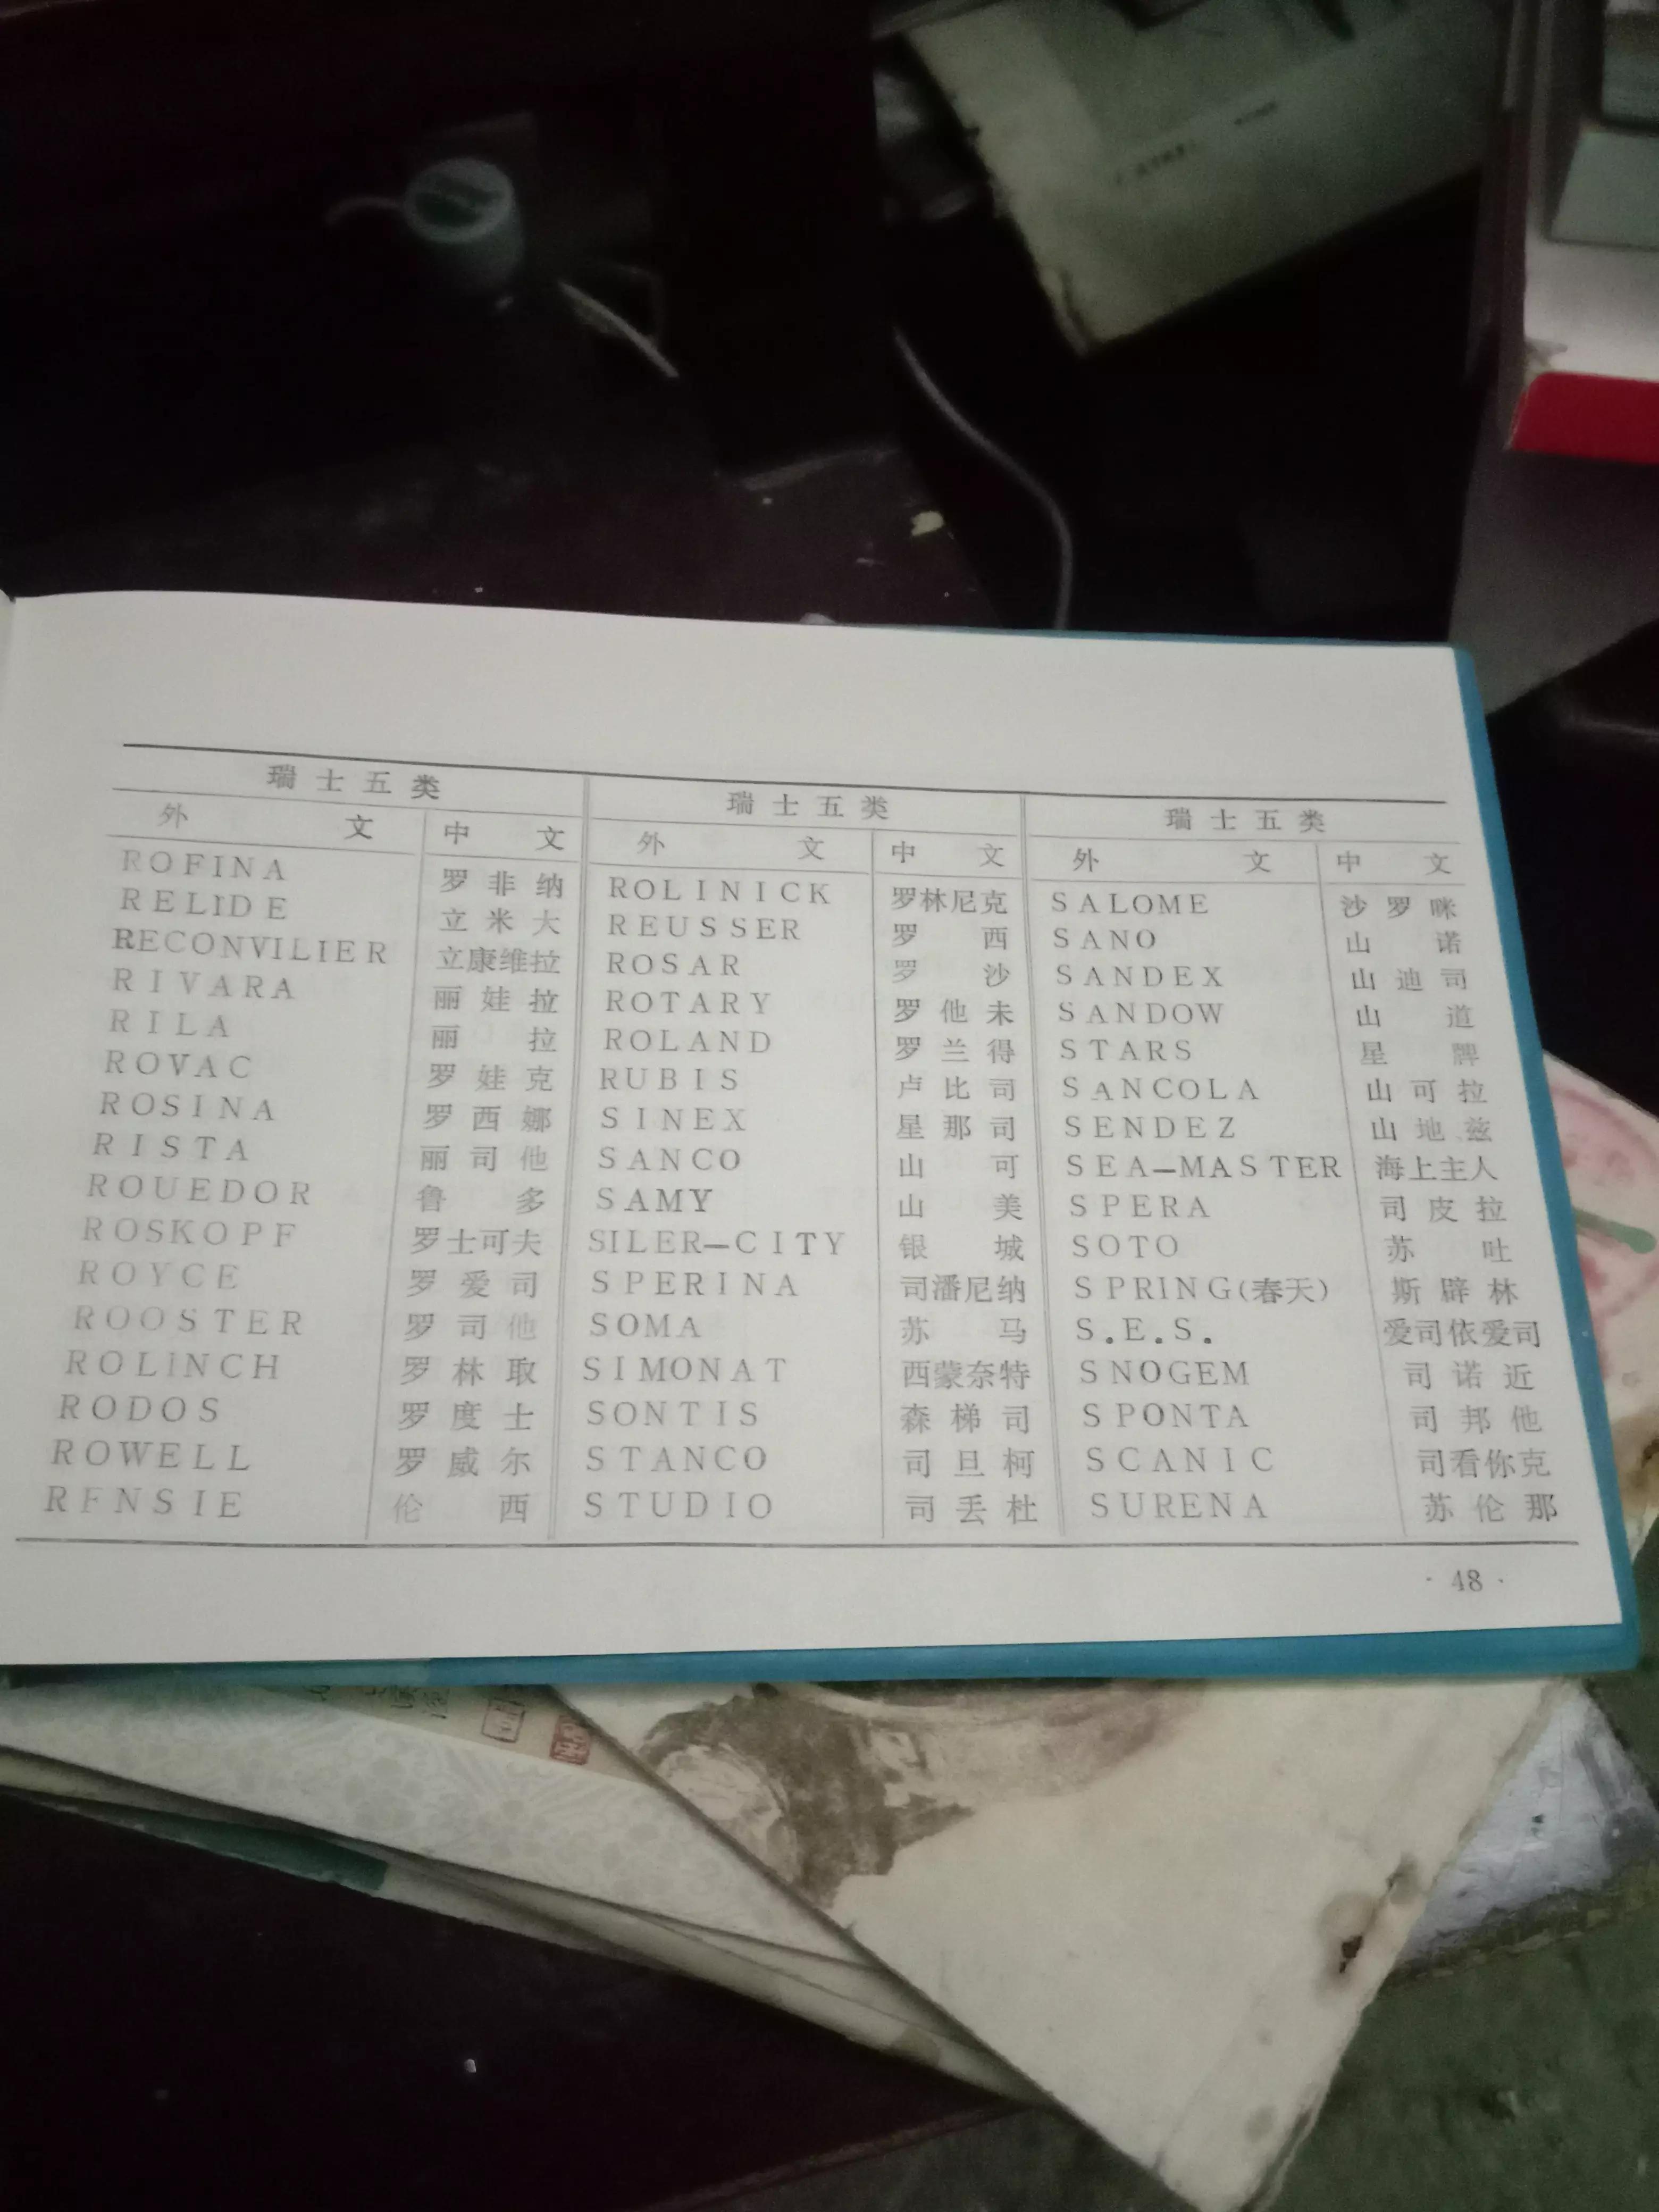 瑞士五类 瑞士五类 瑞士五类
外文 中文 外文 中文 外文 中文
ROFINA 罗非纳 ROLINICK 罗林尼克 SALOME 沙罗咪
RELIDE 立米大 REUSSER 罗西 SANO 山诺
RECONVILIER 立康维拉 ROSAR 罗沙 SANDEX 山迪司
RIVARA 丽娃拉 ROTARY 罗他未 SANDOW 山道
RILA 丽拉 ROLAND 罗兰得 STARS 星牌
ROVAC 罗娃克 RUBIS 卢比司 SANCOLA 山可拉
ROSINA 罗西娜 SINEX 星那司 SENDEZ 山地兹
RISTA 丽司他 SANCO 山可 SEA—MASTER 海上主人
ROUEDOR 鲁多 SAMY 山美 SPERA 司皮拉
ROSKOPF 罗士可夫 SILER—CITY 银城 SOTO 苏吐
ROYCE 罗爱司 SPERINA 司潘尼纳 SPRING(春天) 斯辟林
ROOSTER 罗司他 SOMA 苏马 S.E.S. 爱司依爱司
ROLINCH 罗林取 SIMONAT 西蒙奈特 SNOGEM 司诺近
RODOS 罗度士 SONTIS 森梯司 SPONTA 司邦他
ROWELL 罗威尔 STANCO 司旦柯 SCANIC 司看你克
RFNSIE 伦西 STUDIO 司丢杜 SURENA 苏伦那
·48·